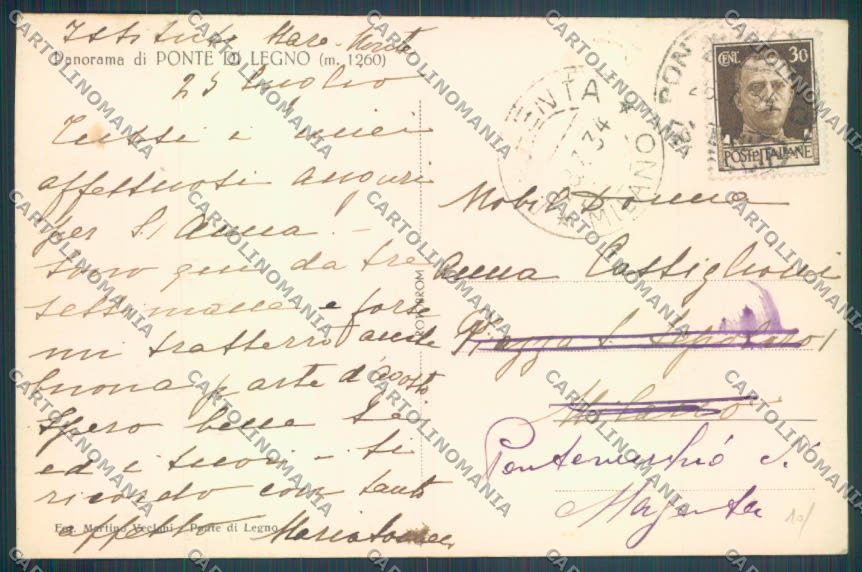 Istituto Mare Monte
Panorama di PONTE DI LEGNO (m. 1260)
25 Luglio
Tutti i miei
affettuosi auguri
per S. Anna -
sono qui da tre
settimane e forse
mi tratterrò anche
buona parte d'agosto
Spero bene Lei
ed i suoi - ti
ricordo con tanto
affetto
Fot. Martino Veclani - Ponte di Legno
FOTOCROM
MAGENTA
7.34
MILANO
PONTE
CENT. 30
POSTE ITALIANE
Nobil Donna
Anna Castiglioni
Piazza S. Sepolcro 1
Milano
Pontevecchio di
Magenta
10/
CARTOLINOMANIA